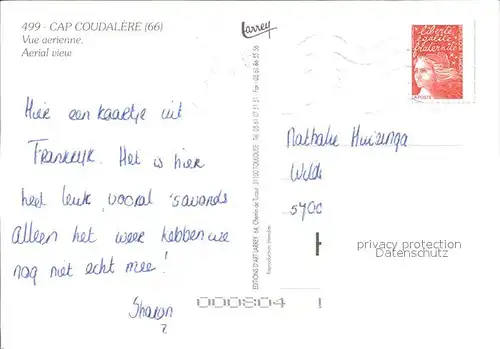 499 - CAP COUDALÈRE (66)
Vue aerienne.
Aerial view
Larrey
liberté
égalité
fraternité
LA POSTE
Hier een kaartje uit
Frankrijk. Het is hier
heel leuk, vooral 's avonds
alleen het weer hebben we
nog niet echt mee!
Sharon
EDITIONS D'ART LARREY 64, Chemin de Tucaut, 31100 TOULOUSE - Tél. 05 61 07 51 51 - Fax 05 61 86 55 56
Reproduction interdite
Nathalie Huizinga
5700
privacy protection
Datenschutz
000804